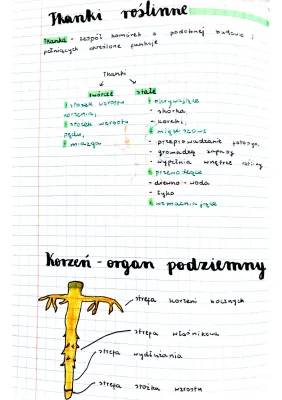 Tkanki roślinne
Tkanka - zespół komórek o podobnej budowie i
pełniących określone funkcje
Tkanki
twórcze
stałe
stożek wzrostu
korzenia;
stożek wzrostu
pędu,
miazga
okrywające
- skórka,
- korek;
miękiszowe
- przeprowadzanie fotosyn.
- gromadzą zapasy
- wypełnia wnętrze rośliny
przewodzące
- drewno - woda
- łyko
wzmacniające
Korzeń - organ podziemny
strefa korzeni bocznych
strefa włośnikowa
strefa wydłużania
strefa stożka wzrostu